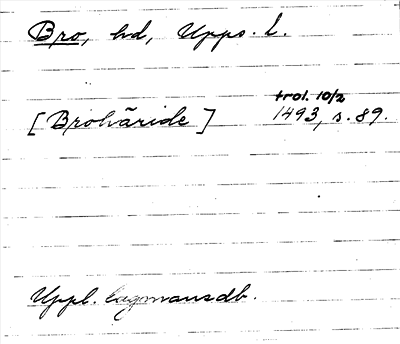 Bro, hd, Upps. l.
trol. 10/2
[Brohäride] 1493, s. 89.
Uppl. lagmansdb.